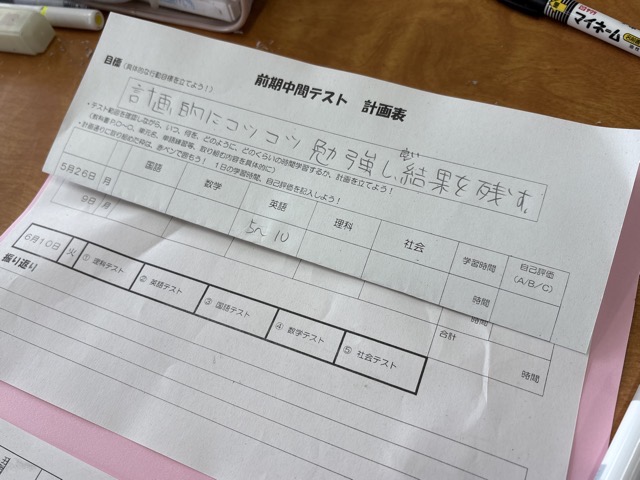 マーキイマ
前期中間テスト 計画表
目標（具体的な行動目標を立てよう！）
計画的にコツコツ勉強し、結果を残す
・テスト範囲を確認しながら、いつ、何を、どのように、どのくらいの時間学習するか、計画を立てよう！
（教科書P.○~○、単元名、単語練習等、取り組む内容を具体的に）
・計画通りに取り組めた時は、赤ペンで囲もう！ 1日の学習時間、自己評価を記入しよう！
国語 数学 英語 理科 社会 学習時間 自己評価（A/B/C）
5月26日 月 5~10 時間
9日 月 時間
合計 時間
6月10日 火 ①理科テスト ②英語テスト ③国語テスト ④数学テスト ⑤社会テスト
振り返り